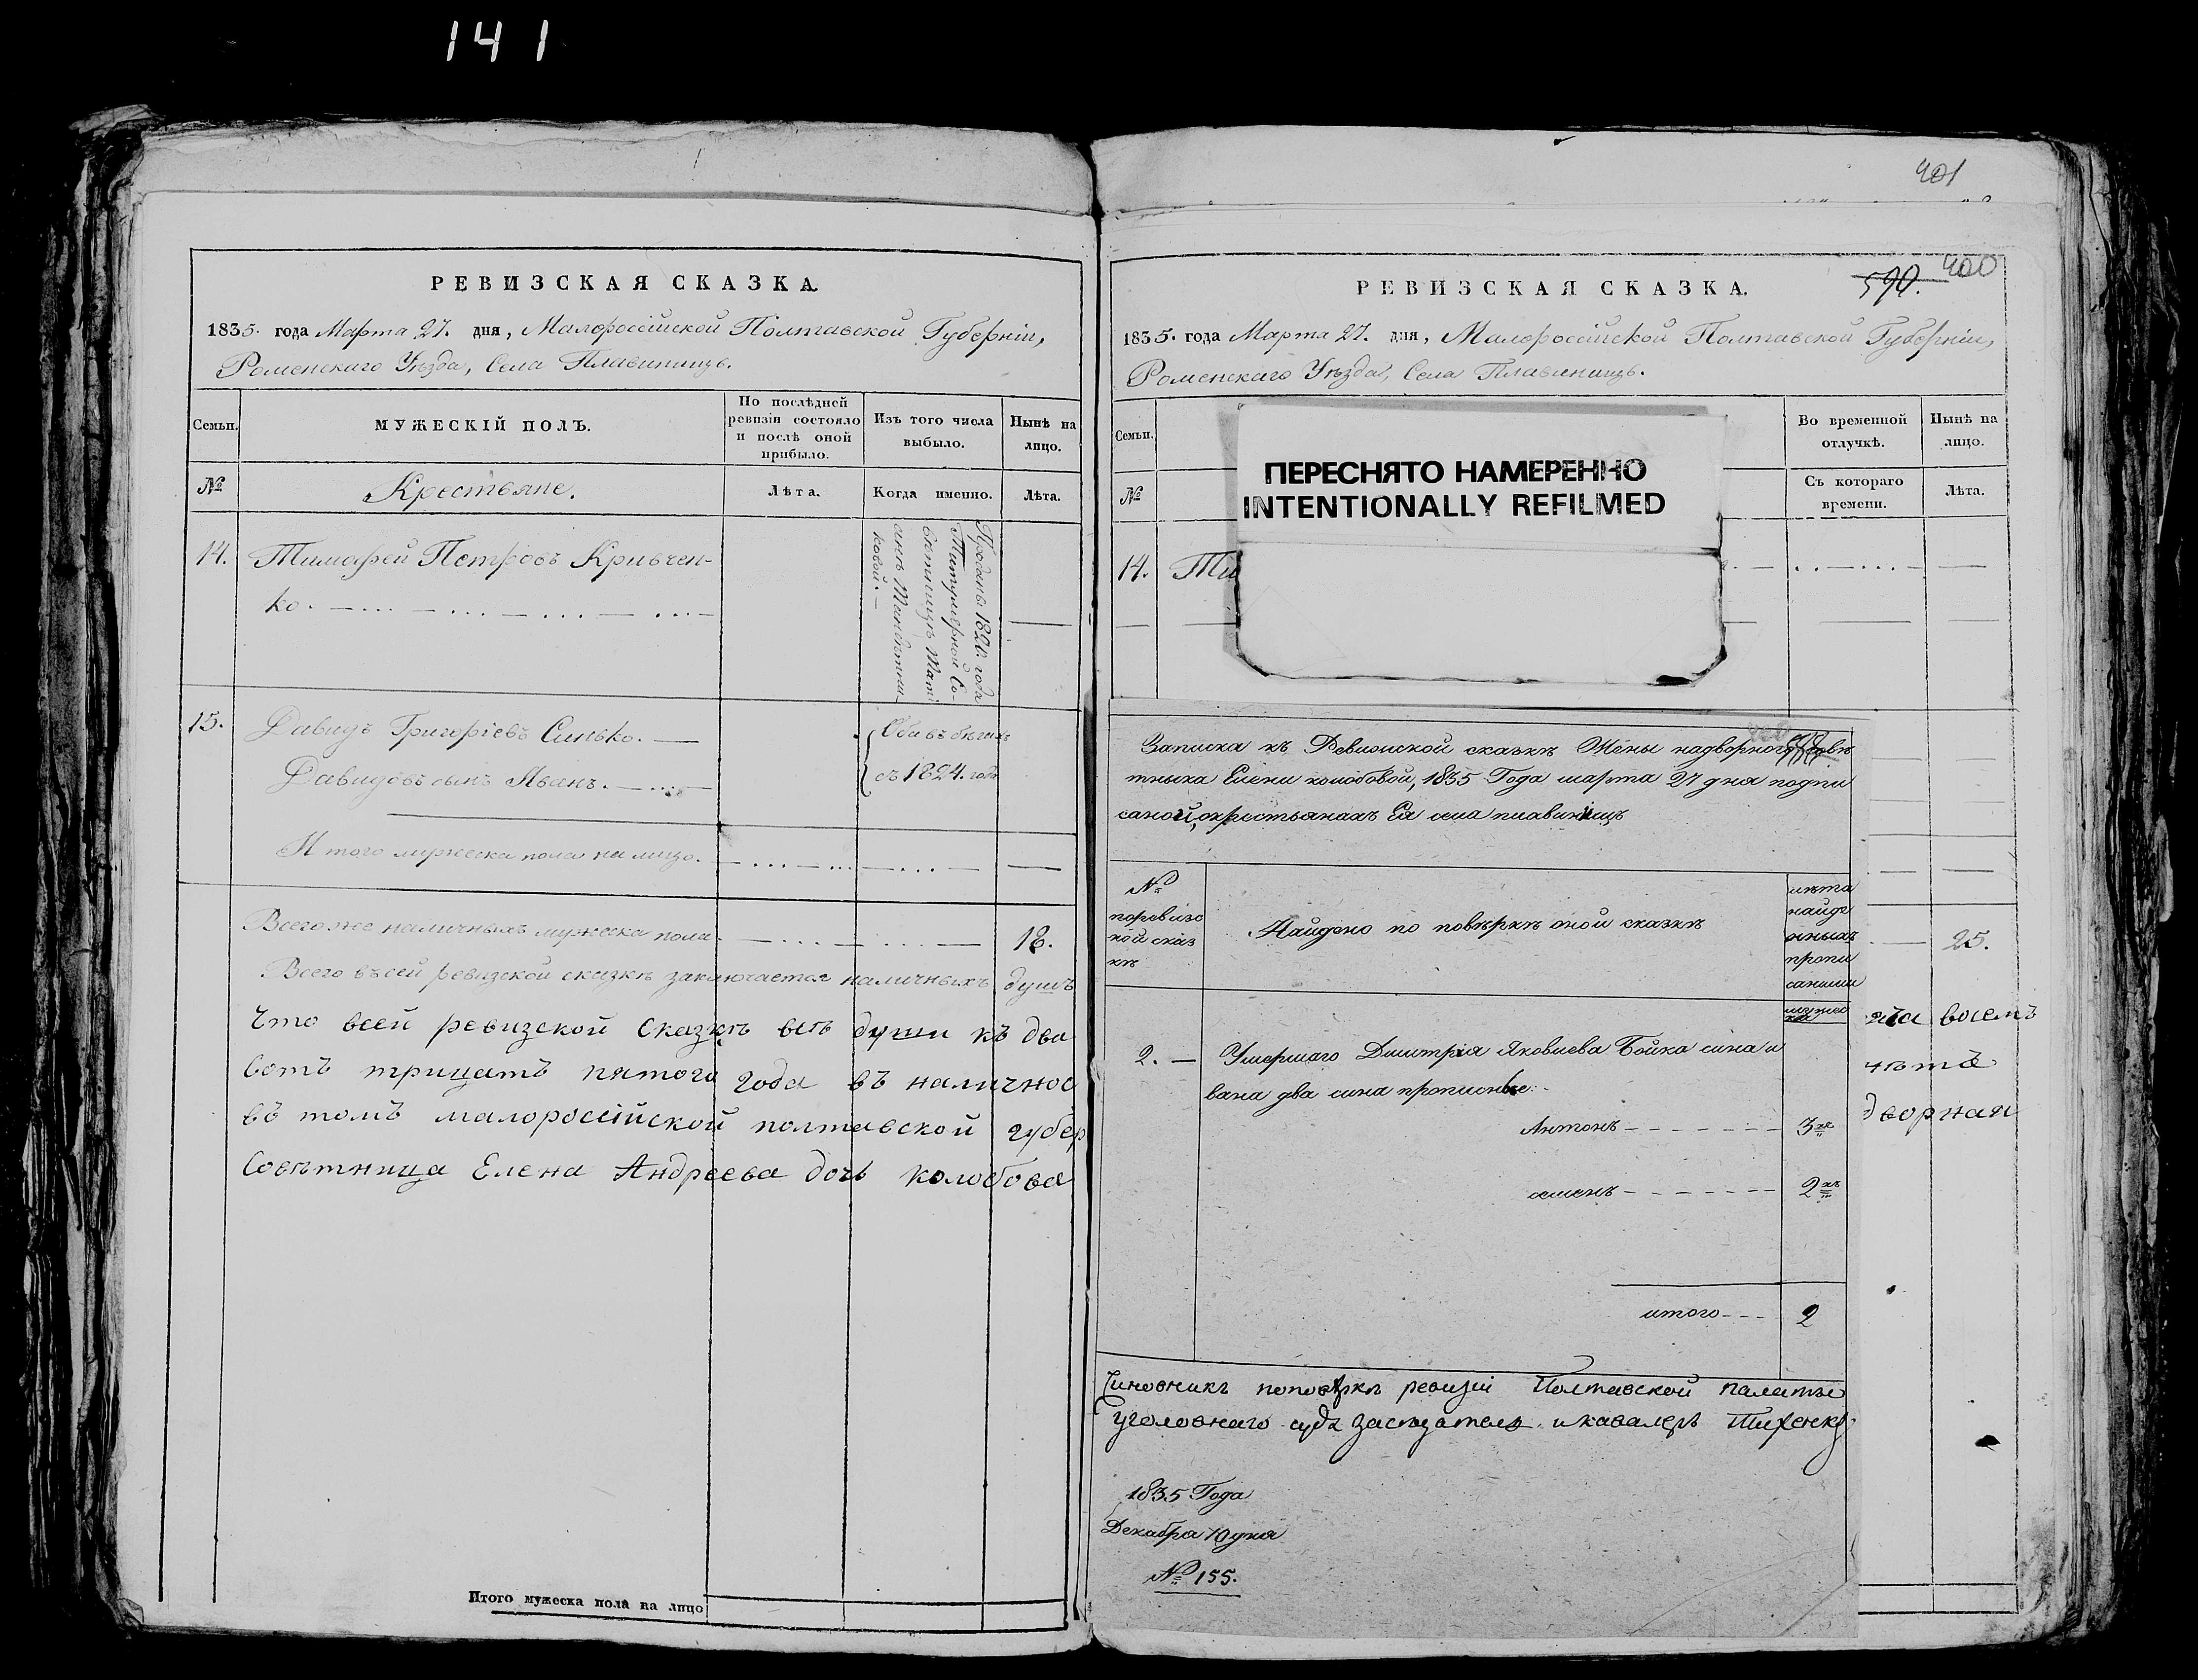 141
РЕВИЗСКАЯ СКАЗКА.
1835. года Марта 27. дня, Малороссійской Полтавской Губерніи,
Роменскаго Уѣзда, Села Плавинищъ.
Семьи.
МУЖЕСКІЙ ПОЛЪ.
По послѣдней
ревизіи состояло
и послѣ оной
прибыло.
Изъ того числа
выбыло.
Нынѣ на
лицо.
№
Крестьяне.
Лѣта.
Когда именно.
Лѣта.
14.
Тимофей Петровъ Кривчен-
ко.
Проданъ 1820. года
Титулярной Со-
вѣтницѣ
ковой.
15.
Давидъ Григоріевъ Синько.
Давидовъ сынъ Иванъ.
Оба въ бѣгахъ
съ 1824. года
Итого мужеска пола на лицо.
Всего же наличныхъ мужеска пола. 18.
Всего въ сей ревизской сказкѣ заключается наличныхъ душъ
Что всей ревизской Сказкѣ всѣ души къ два
вотъ трицать пятого года въ наличнос
въ томъ малороссійской полтавской губер
Совѣтница Елена Андреева дочь колобова
Итого мужеска пола на лицо
401
РЕВИЗСКАЯ СКАЗКА.
590. 400
1835. года Марта 27. дня, Малороссійской Полтавской Губерніи,
Роменскаго Уѣзда, Села Плавинищъ.
Семьи.
Во временной
отлучкѣ.
Нынѣ на
лицо.
ПЕРЕСНЯТО НАМЕРЕННО
INTENTIONALLY REFILMED
№
Съ котораго
времени.
Лѣта.
14. Ти
Записка къ Ревизской сказкѣ Жены надворного совѣ
тныка Елены колобовой, 1835 Года марта 27 дня подпи
саной, окрестьянахъ Ея села плавиницъ
№
поревизс
кой сказ
кѣ
Найдено по повѣркѣ оной сказкѣ
лѣта
найде
оныхъ
пропи
саными
25.
восемъ
дворная
2. — Умершаго Дмитрія Яковлева Бойка сина и
вана два сина прописные:
Антонъ 3хъ
семенъ 2хъ
итого 2
Чиновникъ поповѣркѣ ревизіи Полтавской палаты
уголовнаго суда засѣдатель и кавалеръ
1835 Года
Декабра 10 дня
№ 155.